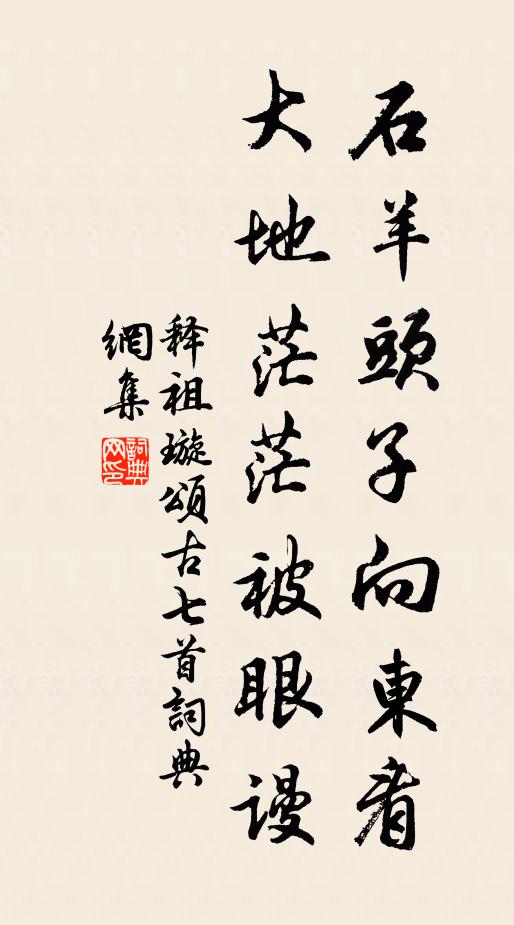 石羊頭子向東看
大地茫茫被眼謾
释祖璇頌古七首詞典
網集
詞典網印